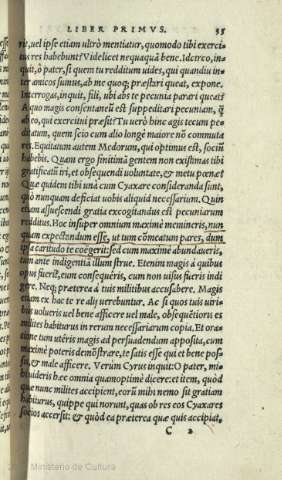 LIBER PRIMVS. 35
rit, uel ipse etiam ultrò mentiatur, quomodo tibi exerci-
tus res habebunt? Videlicet nequaquã bene. Idcirco, in-
quit, ò pater, si quem tu redditum uides, qui quandiu in-
ter amicos sumus, ab me quoq; præstari queat, expone.
Interrogas, inquit, fili, ubi abs te pecunia parari queat?
A quo magis consentaneũ est suppeditari pecuniam, q̃
ab eo, qui exercitui præsit? Tu uerò hinc agis tecum pe-
ditatum, quem scio cum alio longè maiore nõ commuta
res. Equitatum autem Medorum, qui optimus est, sociũ
habebis. Quam ergo finitima gentem non existimas tibi
gratificaturi, et obsequendi uoluntate, & metu pœnæ?
Quæ quidem tibi unà cum Cyaxare consideranda sunt,
quò nunquam deficiat uobis aliquid necessarium. Quin
etiam assuescendi gratia excogitandus est pecuniarum
redditus. Hoc insuper omnium maximè memineris, nun
quam expectandum esse, ut tum cõmeatum pares, dum
ipsa tantùdo te coëgerit: sed cum maximè abundaueris,
tum ante indigentiã illum strue. Etenim magis à quibus
opus fuerit, eum consequêris, cum non uisus fueris indi
gere. Neq; præterea à tuis militibus accusabere. Magis
etiam ex hac te re alij uerebuntur. Ac si quos tuis uiri-
bus uolueris uel bene afficere uel male, obsequẽtiores
milites habiturus in rerum necessariarum copia. Et ora-
tione tum uteris magis ad persuadendum apposita, cum
maximè poteris demõstrare, te satis esse qui et bene pos-
sis, & malè afficere. Verùm Cyrus inquit: O pater, mi-
hi uideris hæc omnia quàm optimè dicere: et item, quòd
quæ nunc milites accipient, eorũ mihi nemo sit gratiam
habiturus, quippe qui norunt, quas ob res eos Cyaxares
socios accersit: & quòd ea præterea quæ quis accipiat,
C 2
Ministerio de Cultura